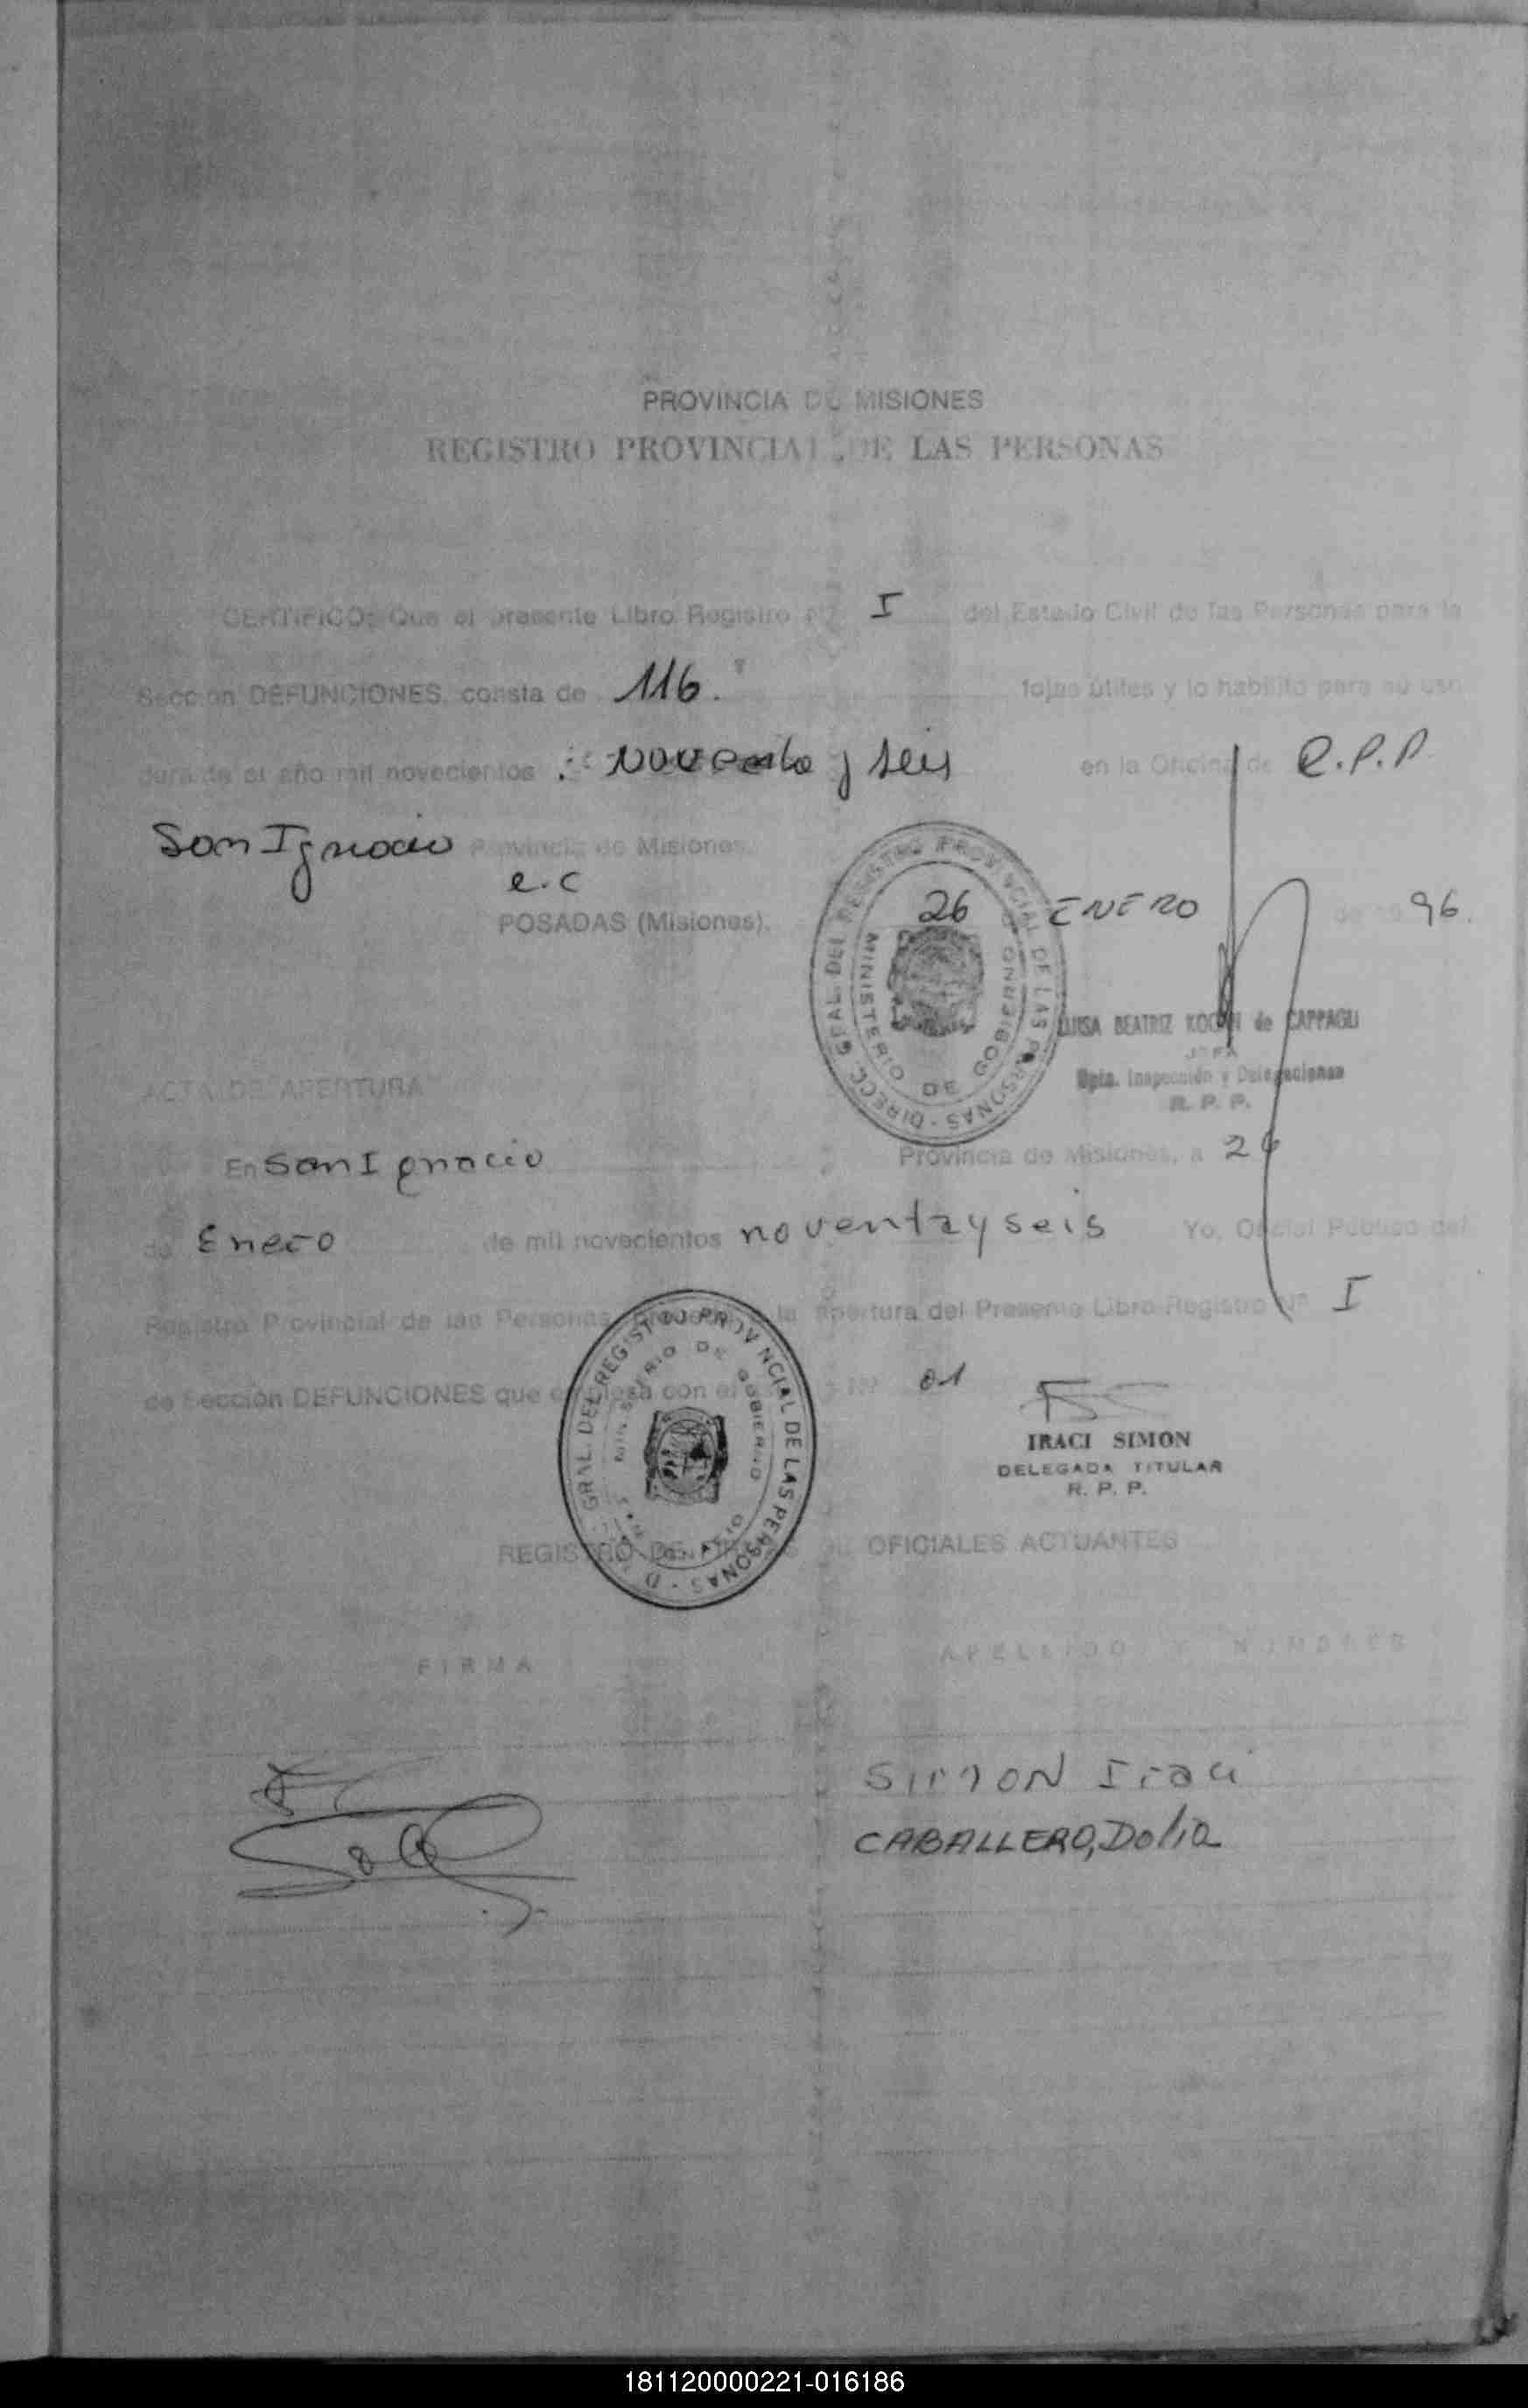 PROVINCIA DE MISIONES
REGISTRO PROVINCIAL DE LAS PERSONAS
CERTIFICO: Que el presente Libro Registro Nº I del Estado Civil de las Personas para la
Sección DEFUNCIONES, consta de 116. fojas útiles y lo habilito para su uso
durante el año mil novecientos noventa y seis en la Oficina de R.P.P.
San Ignacio Provincia de Misiones.
e.c
POSADAS (Misiones), 26 ENERO de 19 96.
DIRECC. GRAL. DEL REGISTRO PROVINCIAL DE LAS PERSONAS -
MINISTERIO DE GOBIERNO
LUISA BEATRIZ KOGAN de CAPPAGLI
JEFA
Dpto. Inspección y Delegaciones
R. P. P.
ACTA DE APERTURA
En San Ignacio Provincia de Misiones, a 26
de Enero de mil novecientos noventa y seis Yo, Oficial Público del
Registro Provincial de las Personas, la apertura del Presente Libro Registro Nº I
de Sección DEFUNCIONES que empieza con el Nº 01
IRACI SIMON
DELEGADA TITULAR
R. P. P.
GRAL. DEL REGISTRO PROVINCIAL DE LAS PERSONAS - D
MINISTERIO DE GOBIERNO
SAN IGNACIO
REGISTRO DE OFICIALES ACTUANTES
FIRMA APELLIDO Y NOMBRES
SIMON Iraci
CABALLERO, Delia
181120000221-016186